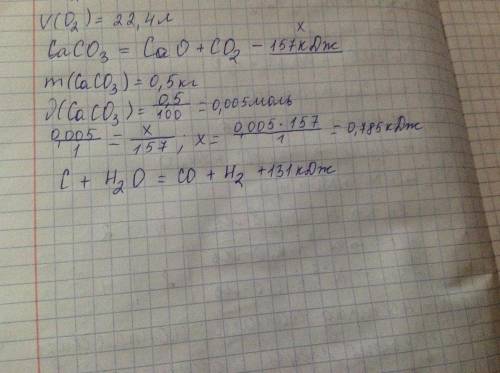 V(O₂) = 22,4 л
x
CaCO₃ = CaO + CO₂ - 157кДж
m(CaCO₃) = 0,5кг
∂(CaCO₃) = 0,5/100 = 0,005моль
0,005/1 = x/157 ; x = 0,005·157/1 = 0,785кДж
C + H₂O = CO + H₂ + 131кДж